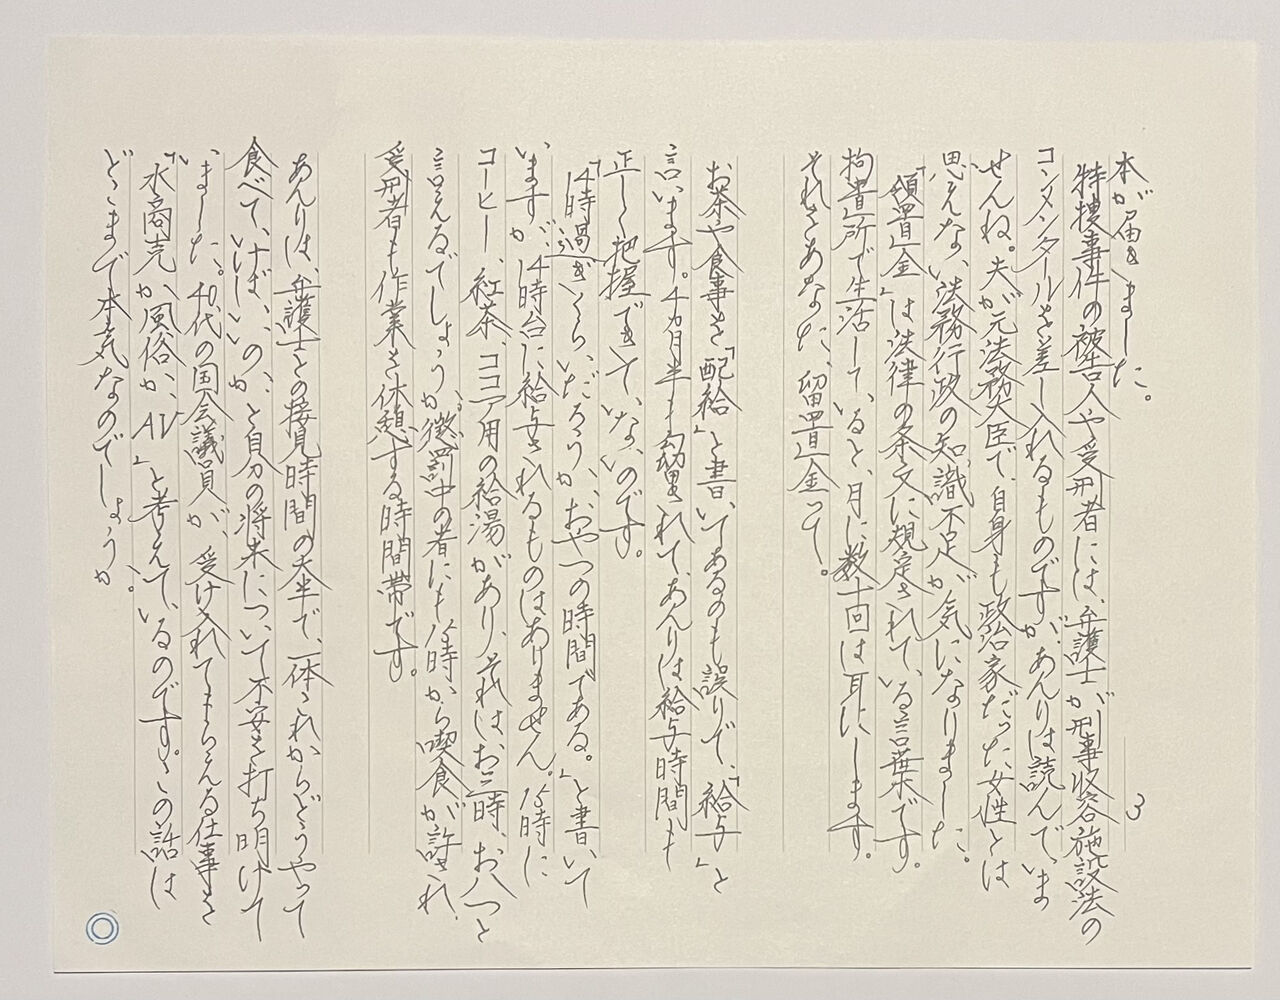 3
本が届きました。
特捜事件の被告人や受刑者には、弁護士が刑事収容施設法の
コンメンタールを差し入れるものですが、あんりは読んでいま
せんね。夫が元法務大臣で、自身も政治家だった女性とは
思えない、法務行政の知識不足が気になりました。
「領置金」は法律の条文に規定されている言葉です。
拘置所で生活していると、月に数十回は耳にします。
それをあなた、留置金って。
お茶や食事を「配給」と書いてあるのも誤りで、「給与」と
言います。4ヵ月半も勾留されて、あんりは給与時間も
正しく把握できていないのです。
「4時過ぎくらいだろうか、おやつの時間である。」と書いて
いますが、4時台に給与されるものはありません。15時に
コーヒー、紅茶、ココア用の給湯があり、それはお三時、お八つと
言えるでしょうが、懲罰中の者にも15時から喫食が許され、
受刑者も作業を休憩する時間帯です。
あんりは、弁護士との接見時間の大半で、一体これからどうやって
食べていけばいいのか、と自分の将来について不安を打ち明けて
いました。40代の国会議員が、受け入れてもらえる仕事を
「水商売か風俗か、AV」と考えているのです。この話は
どこまで本気なのでしょうか。